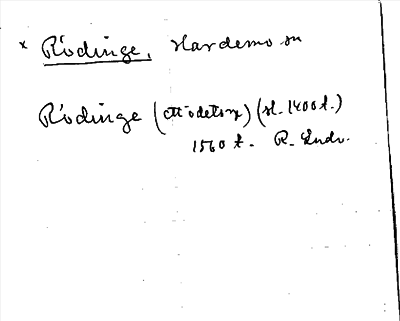 × Rödinge, Hardemo sn
Rödinge (Ottödetorp) (sl. 1400 t.)
1560 t. R. Ludv.